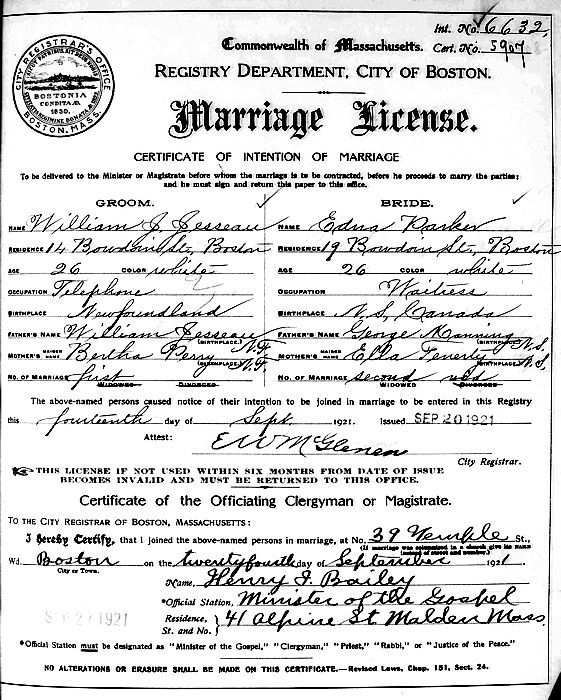 Int. No. 6632
Commonwealth of Massachusetts. Cert. No. 5907
CITY REGISTRAR'S OFFICE
BOSTONIA
CONDITA A.D.
1630.
BOSTON, MASS.
REGISTRY DEPARTMENT, CITY OF BOSTON.
Marriage License.
CERTIFICATE OF INTENTION OF MARRIAGE
To be delivered to the Minister or Magistrate before whom the marriage is to be contracted, before he proceeds to marry the parties;
and he must sign and return this paper to this office.
GROOM. BRIDE.
NAME William J. Jesseau NAME Edna Parker
RESIDENCE 14 Bowdoin St., Boston RESIDENCE 19 Bowdoin St., Boston
AGE 26 COLOR white AGE 26 COLOR white
OCCUPATION Telephone OCCUPATION Waitress
BIRTHPLACE Newfoundland BIRTHPLACE N.S. Canada
FATHER'S NAME William Jesseau (BIRTHPLACE) N.F. FATHER'S NAME George Manning (BIRTHPLACE) N.S.
MOTHER'S MAIDEN NAME Bertha Perry (BIRTHPLACE) N.F. MOTHER'S MAIDEN NAME Ella (BIRTHPLACE) N.S.
NO. OF MARRIAGE first WIDOWED DIVORCED NO. OF MARRIAGE second wid WIDOWED DIVORCED
The above-named persons caused notice of their intention to be joined in marriage to be entered in this Registry
this fourteenth day of Sept. 1921. Issued SEP 20 1921
Attest: E W McGlenen
City Registrar.
THIS LICENSE IF NOT USED WITHIN SIX MONTHS FROM DATE OF ISSUE
BECOMES INVALID AND MUST BE RETURNED TO THIS OFFICE.
Certificate of the Officiating Clergyman or Magistrate.
TO THE CITY REGISTRAR OF BOSTON, MASSACHUSETTS:
I Hereby Certify, that I joined the above-named persons in marriage, at No. 39 Temple St.,
(If marriage was solemnized in a church give its NAME instead of street and number.)
Wd. Boston on the twenty fourth day of September 1921
City or Town.
Name, Henry F. Bailey
*Official Station, Minister of the Gospel
SEP 27 1921
Residence, St. and No. 41 Alpine St. Malden Mass.
*Official Station must be designated as "Minister of the Gospel," "Clergyman," "Priest," "Rabbi," or "Justice of the Peace."
NO ALTERATIONS OR ERASURE SHALL BE MADE ON THIS CERTIFICATE.—Revised Laws, Chap. 151, Sect. 24.